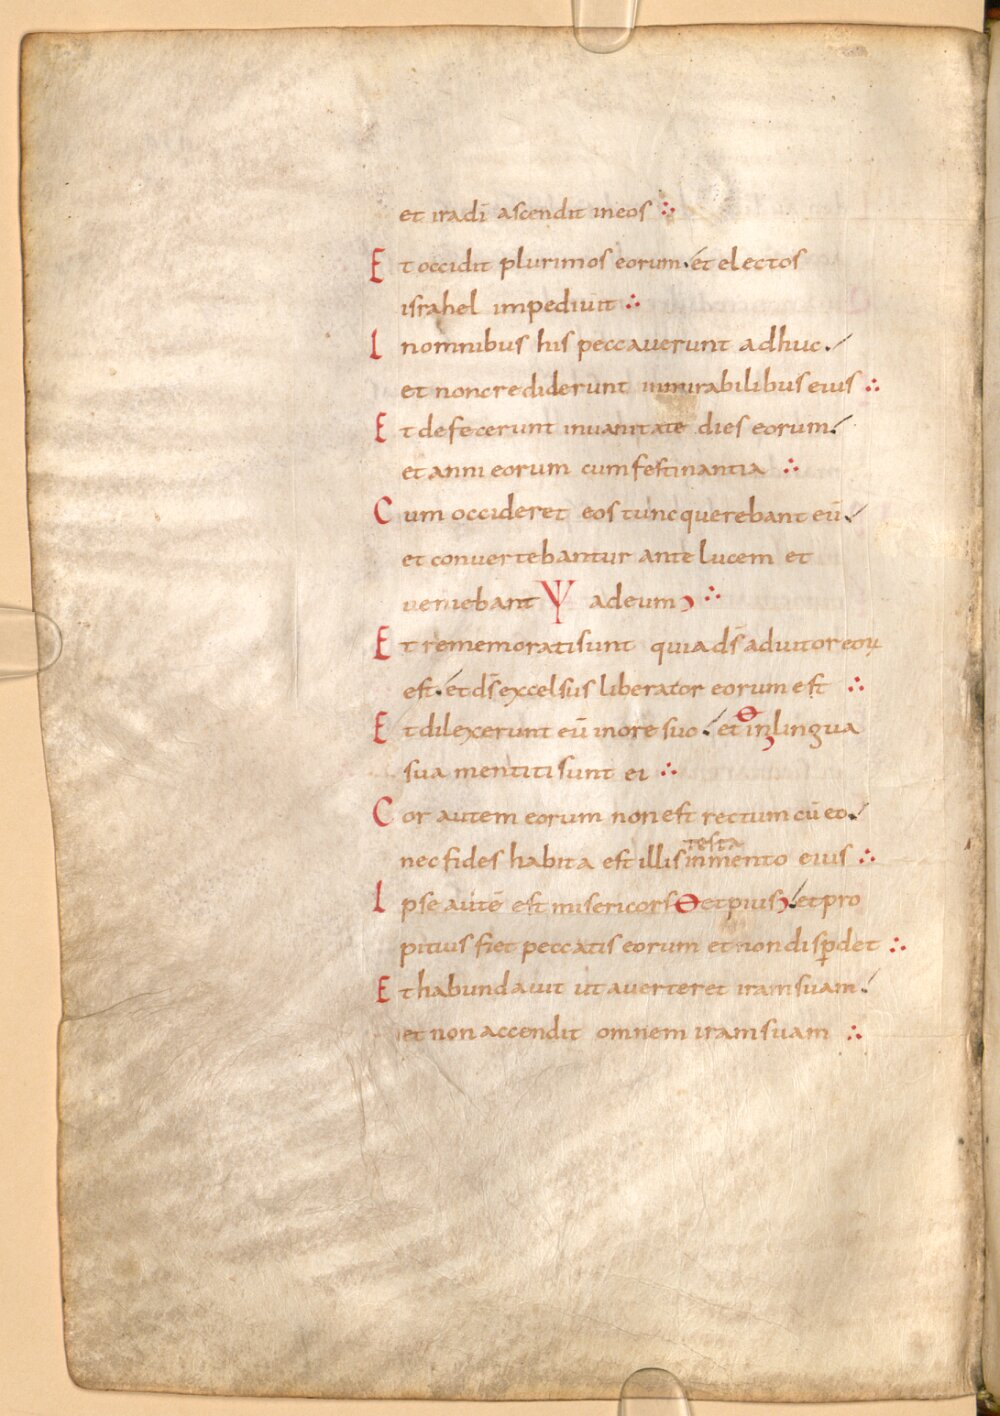 et ira dī ascendit in eos ∴
Et occidit plurimos eorum. et electos
israhel impediuit ∴
In omnibus his peccauerunt adhuc.
et non crediderunt in mirabilibus eius ∴
Et defecerunt in uanitate dies eorum.
et anni eorum cum festinantia ∴
Cum occideret eos tunc querebant eū.
et conuertebantur ante lucem et
ueniebant Ψ ad eum ∴
Et rememorati sunt quia dS̄ adiutor eorꝝ
est. et dS̄ excelsus liberator eorum est ∴
Et dilexerunt eū in ore suo. et in lingua
sua mentiti sunt ei ∴
Cor autem eorum non est rectum cū eo.
testa
nec fides habita est illis in mento eius ∴
Ipse autē est misericors et pius. et pro
pitius fiet peccatis eorum et non disꝑdet ∴
Et habundauit ut auerteret iram suam.
et non accendit omnem iram suam ∴